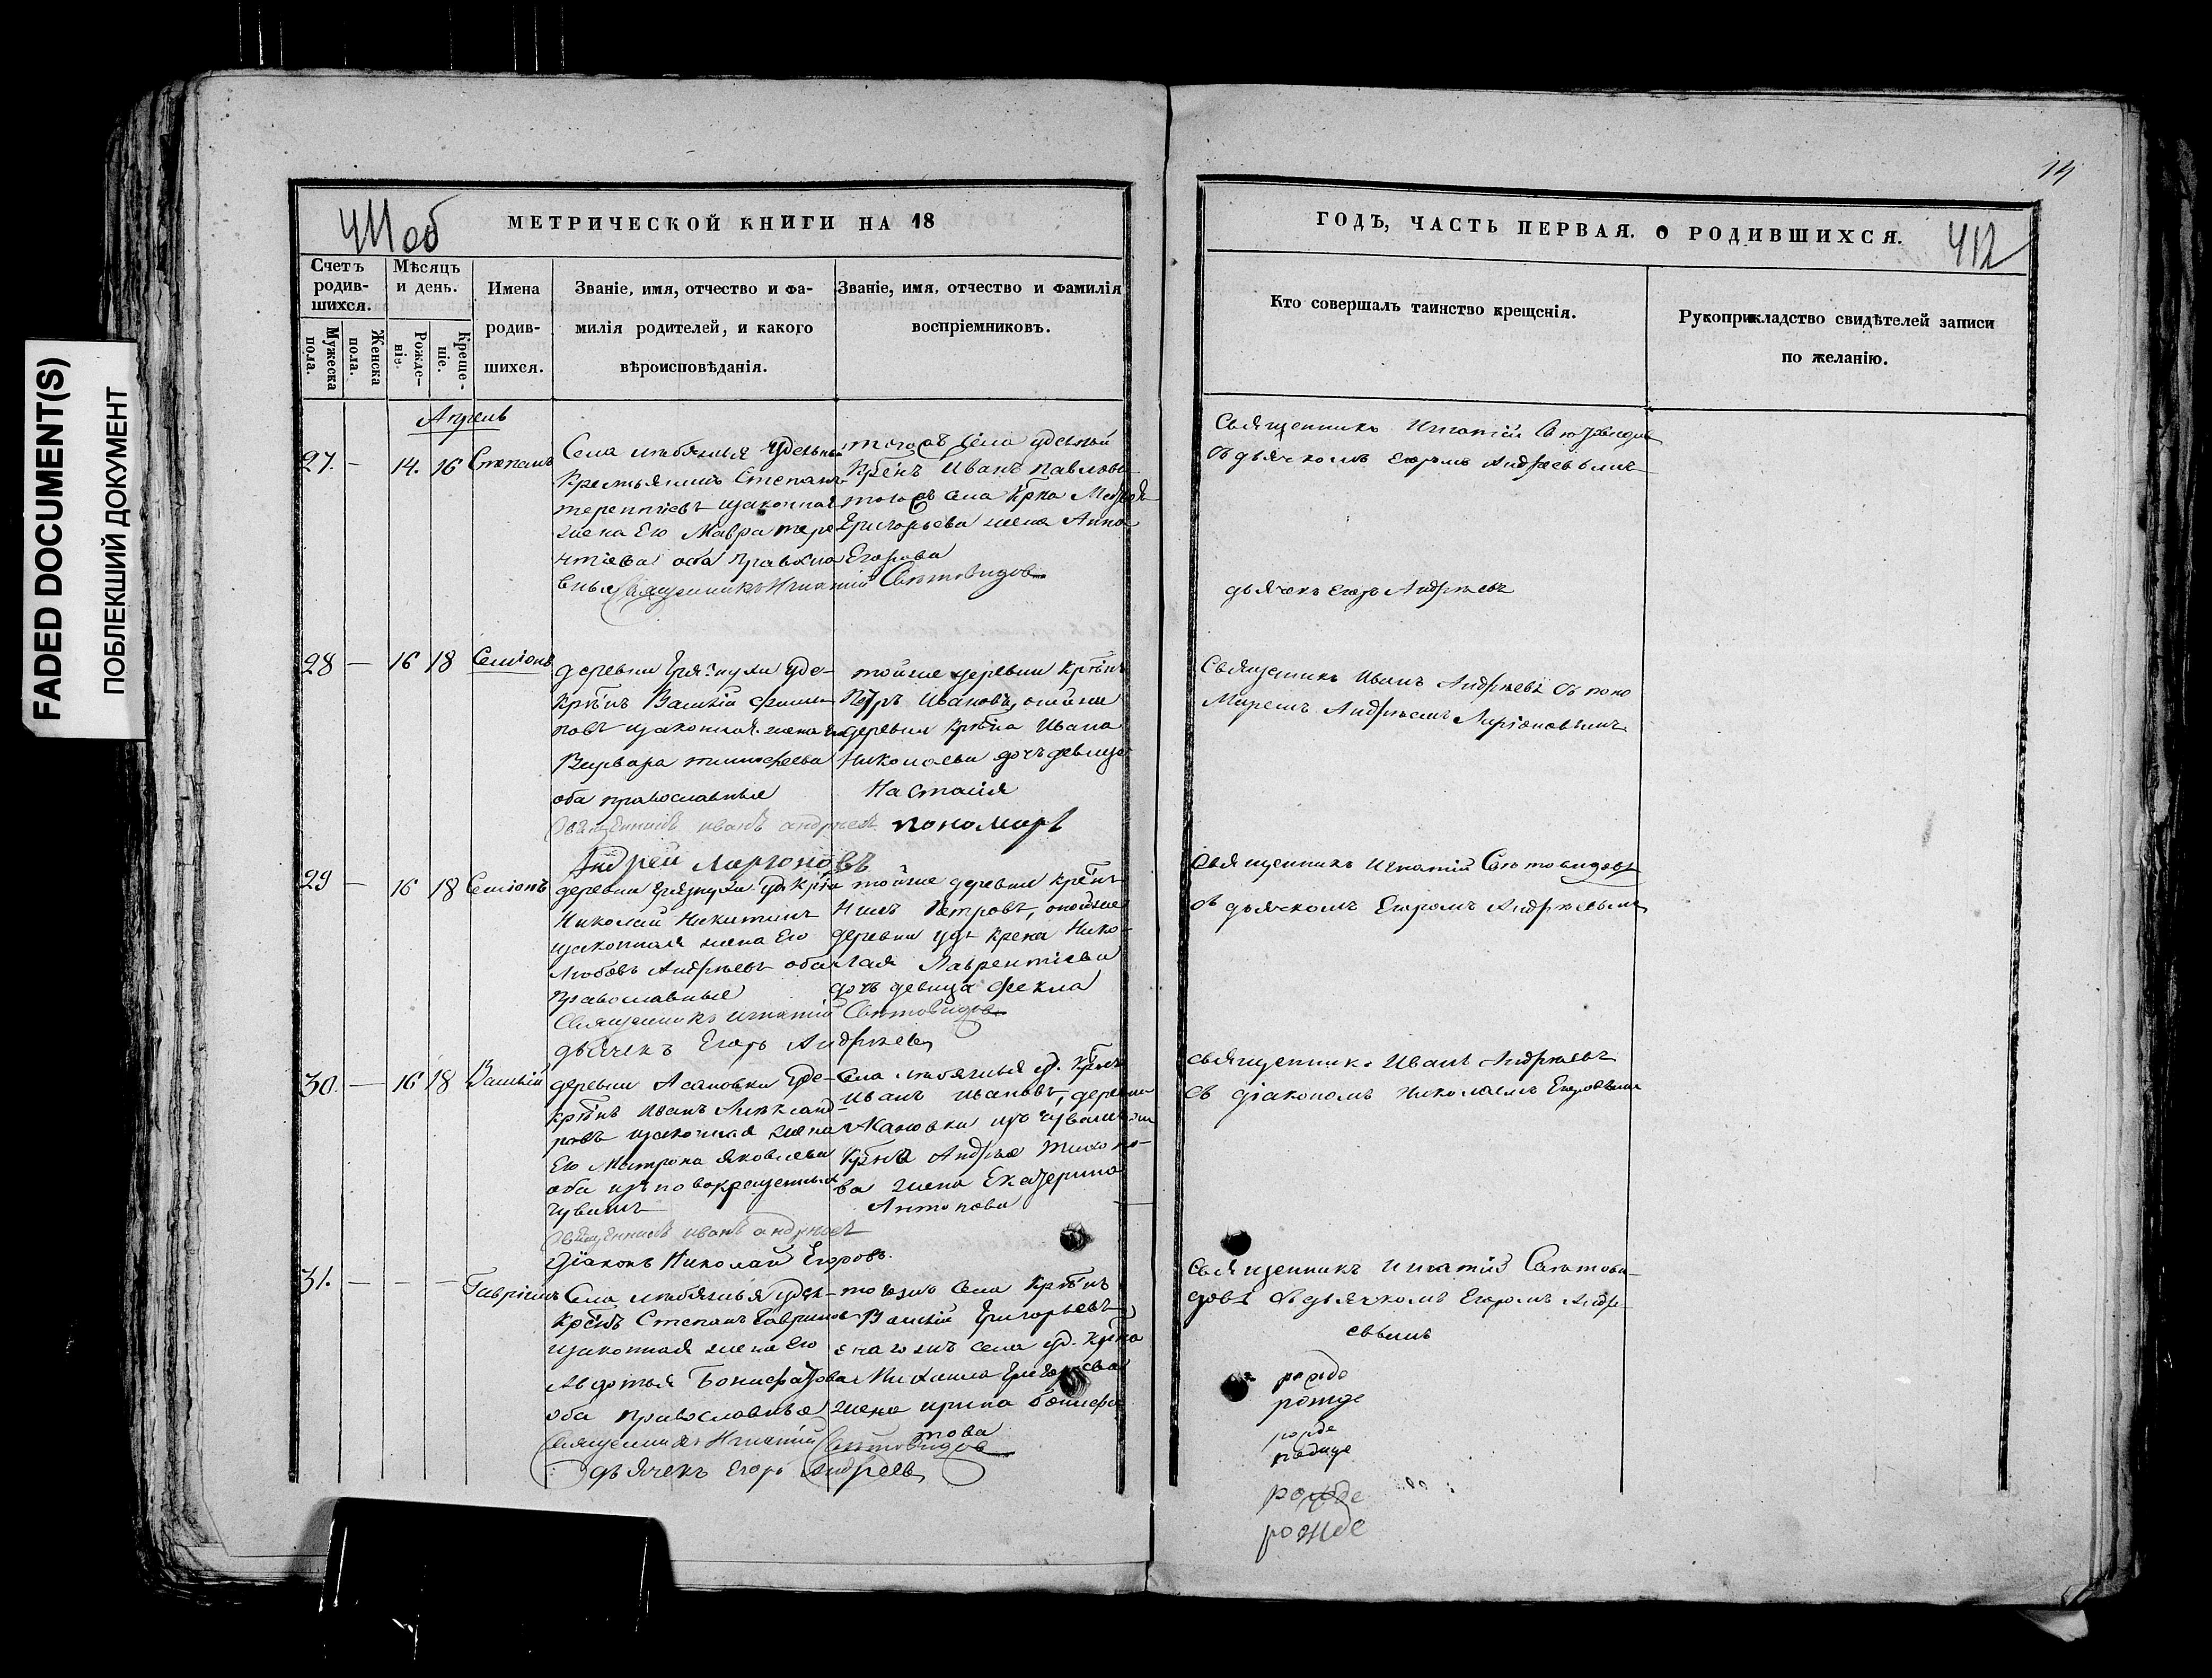 FADED DOCUMENT(S)
ПОБЛЕКШИЙ ДОКУМЕНТ
14
411об
МЕТРИЧЕСКОЙ КНИГИ НА 18
Счетъ родив-шихся.
Мужеска пола.
Женска пола.
Мѣсяцъ и день.
Рожде-нія.
Креще-ніе.
Имена
родив-
шихся.
Званіе, имя, отчество и фа-
милія родителей, и какого
вѣроисповѣданія.
Званіе, имя, отчество и фамилія
воспріемниковъ.
Апрель
27. — 14. 16 Степанъ
Села удельный
Крестьянинъ Степанъ
терентіевъ изаконная
жена Его Мавра тере
нтіева оба Правосла
вныя Священникъ Игнатій Святовидовъ
села удельный
Крѣнъ Иванъ Павловъ
села Крна
Григорьева жена Анна
Егорова
28 — 16 18 Семіонъ
деревни уде-
Крѣнъ Василій Филип
повъ изаконная жена Его
Варвара тимофеева
оба православные
священникъ иванъ андреевъ пономарь
Андрей Ларіоновъ
тойже деревни Крѣнъ
Петръ Ивановъ, оттойже
деревни Крѣна Ивана
Николаева дочь девица
Настасія
29 — 16 18 Семіонъ
деревни уд Крѣнъ
Николай Никитинъ
изаконная жена Его
Любовь Андреевъ оба
Православные
Священникъ игнатій Святовидовъ
дьячекъ Егоръ Андреевъ
тойже деревни крѣнъ
Петровъ, оттойже
деревни уд Крена Нико-
лая Лаврентіева
дочь девица Фекла
30. — 16 18 Василій
деревни Асановки уде-
крѣнъ Иванъ Александ
ровъ изаконная жена
Его Матрона Яковлева
оба изъ новокрещенныхъ
чувашъ
священникъ иванъ андреевъ
Діаконъ Николай Егоровъ.
Села уд. Крѣнъ
Иванъ Ивановъ, деревни
изъ чувашъ
Крѣнъ Андрея Тихоно-
ва жена Екатерина
Антонова
31. — — — Гавріилъ
Села удел-
крѣнъ Степанъ Гавриловъ
изаконная жена Его
Авдотья Бонифатова
оба православные
Священникъ Игнатій Святовидовъ
дьячекъ Егоръ Андреевъ
тогожъ Села Крѣнъ
Василій Григорьевъ
села уд. Крна
Михаила Григорьева
жена ирина бонифа
това
ГОДЪ, ЧАСТЬ ПЕРВАЯ. О РОДИВШИХСЯ.
412
Кто совершалъ таинство крещенія.
Рукоприкладство свидѣтелей записи
по желанію.
Священникъ Игнатій Святовидовъ
съ дьячкомъ Егоромъ Андреевымъ
дьячекъ Егоръ Андреевъ
Священникъ Иванъ Андреевъ съ поно
маремъ Андреемъ Ларіоновымъ
Священникъ Игнатій Святовидовъ
съ дьячкомъ Егоромъ Андреевымъ
священникъ Иванъ Андреевъ
съ діакономъ Николаемъ Егоровымъ
Священникъ игнатій Святови-
довъ съ дьячкомъ Егоромъ Андре
евымъ
рожде
рожде
рожде
рожде